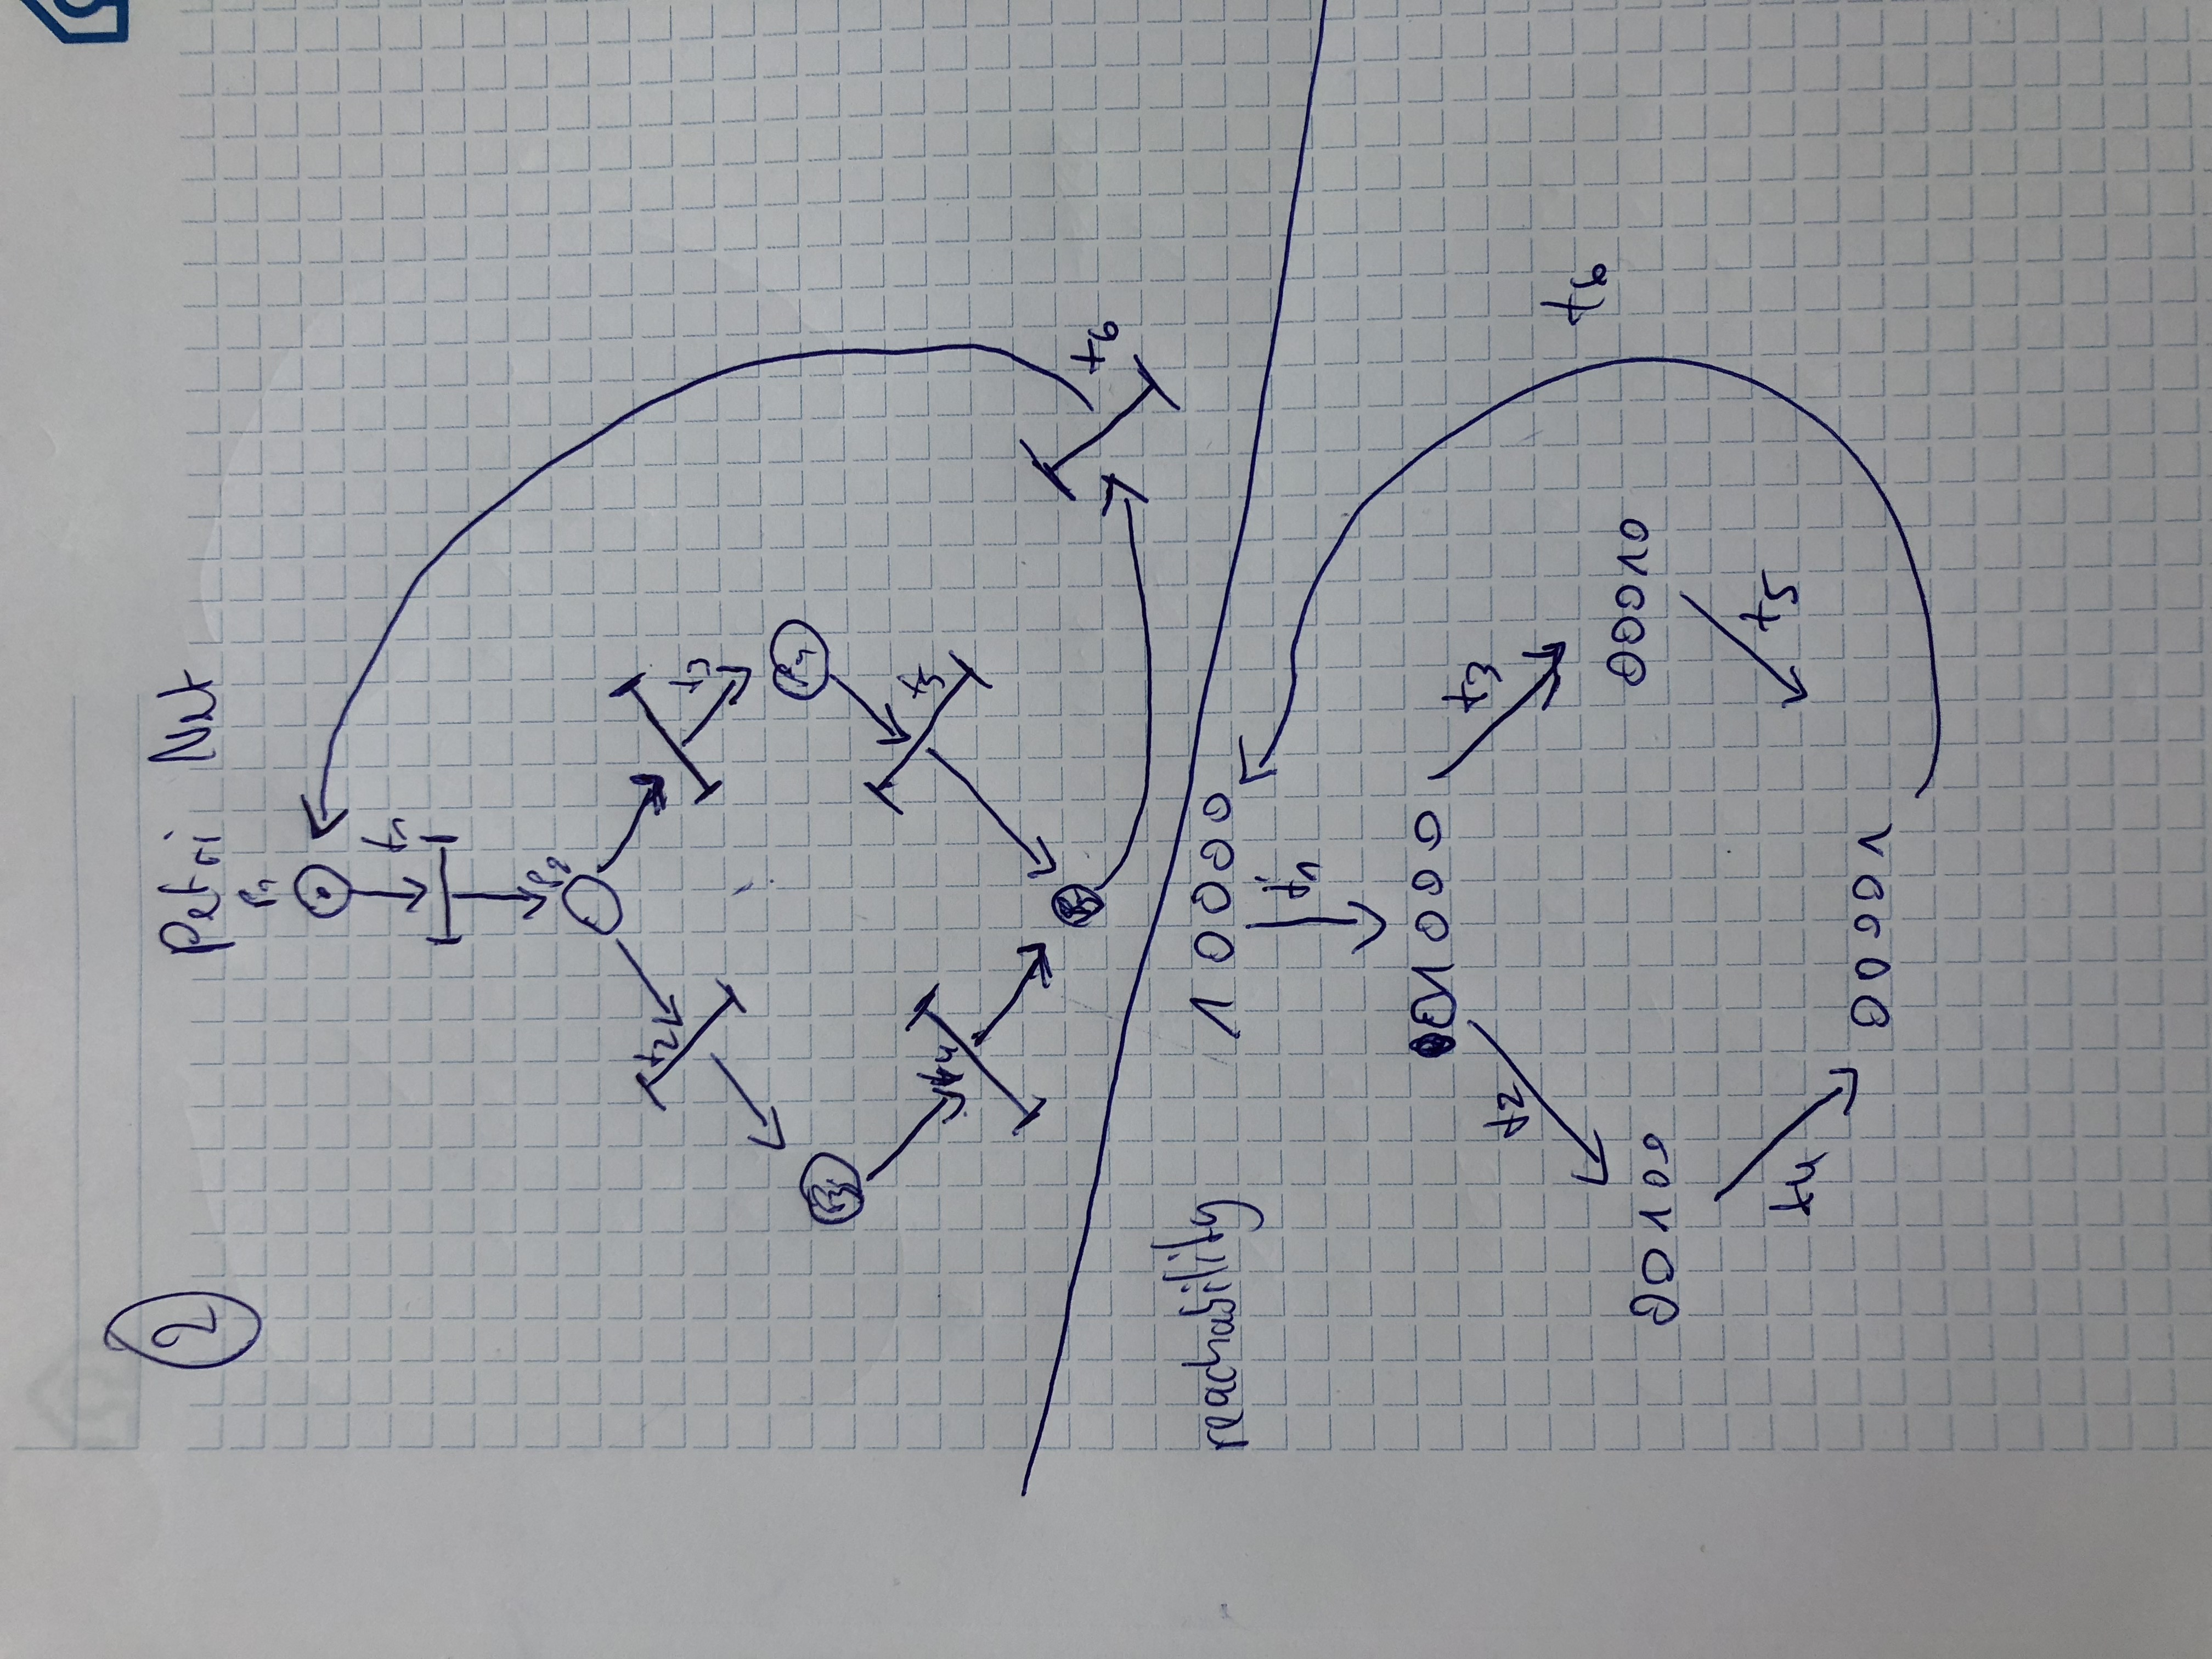 2
Petri Net
P1
t1
P2
t2
t3
P3
P4
t4
t5
P5
t6
reachability
10000
t1
01000
t2
t3
00100
00010
t6
t4
t5
00001